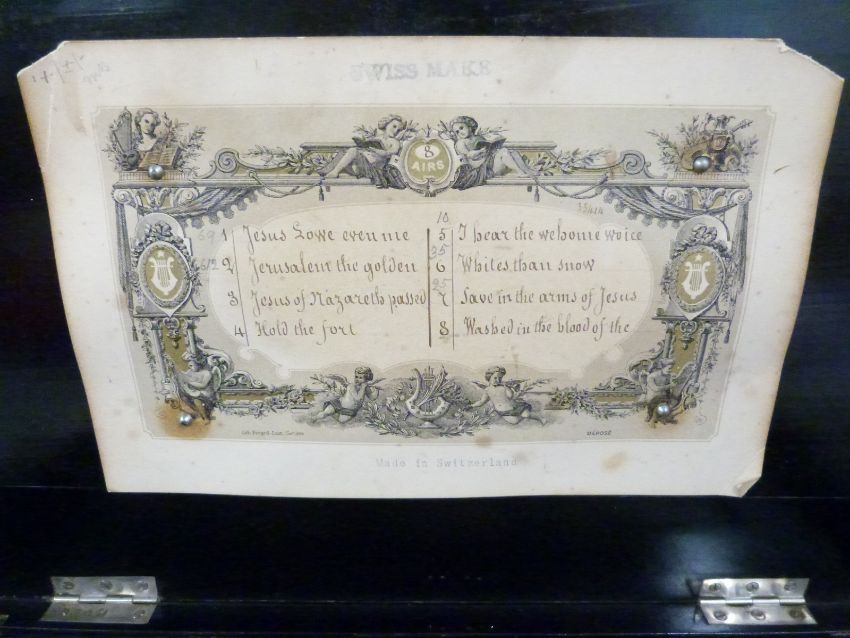 SWISS MAKE
8
AIRS
1 Jesus Lowe even me
2 Jerusalem the golden
3 Jesus of Nazareth passed
4 Hold the fort
10
5 I hear the wehome woice
35
6 Whites than snow
25
7 Save in the arms of Jesus
8 Washed in the blood of the
DÉPOSÉ
Made in Switzerland